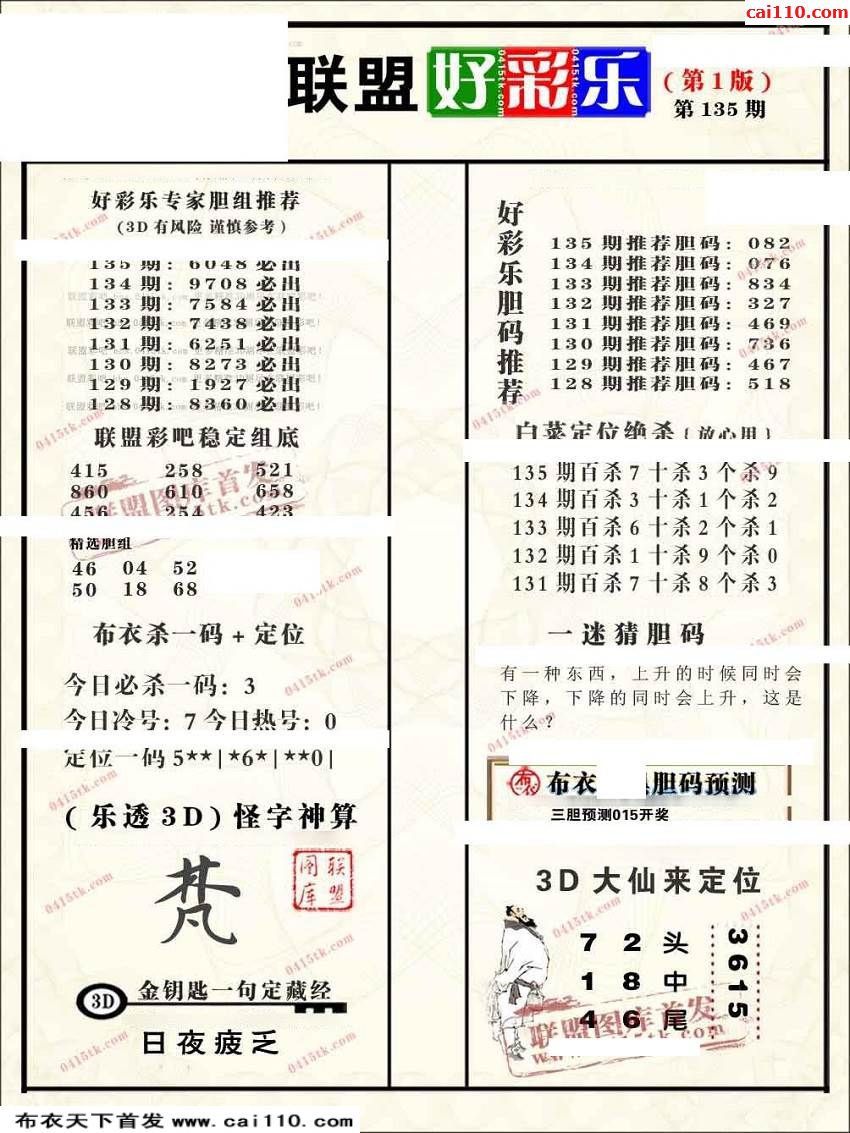 cai110.com
联盟好彩乐
(第1版)
第135期
好彩乐专家胆组推荐
(3D有风险 谨慎参考)
135期:6048必出
134期:9708必出
133期:7584必出
132期:7438必出
131期:6251必出
130期:8273必出
129期:1927必出
128期:8360必出
联盟彩吧稳定组底
415 258 521
860 610 658
456 254 423
精选胆组
46 04 52
50 18 68
布衣杀一码+定位
今日必杀一码:3
今日冷号:7 今日热号:0
定位一码5**|*6*|**0|
(乐透3D)怪字神算
梵
联盟图库
3D
金钥匙一句定藏经
日夜疲乏
好彩乐胆码推荐
135期推荐胆码:082
134期推荐胆码:076
133期推荐胆码:834
132期推荐胆码:327
131期推荐胆码:469
130期推荐胆码:736
129期推荐胆码:467
128期推荐胆码:518
白菜定位绝杀{放心用}
135期百杀7十杀3个杀9
134期百杀3十杀1个杀2
133期百杀6十杀2个杀1
132期百杀1十杀9个杀0
131期百杀7十杀8个杀3
一迷猜胆码
有一种东西,上升的时候同时会
下降,下降的同时会上升,这是
什么?
布衣
胆码预测
三胆预测015开奖
3D大仙来定位
7 2 头
1 8 中
4 6 尾
3615
联盟图库首发
0415tk.com
布衣天下首发 www.cai110.com